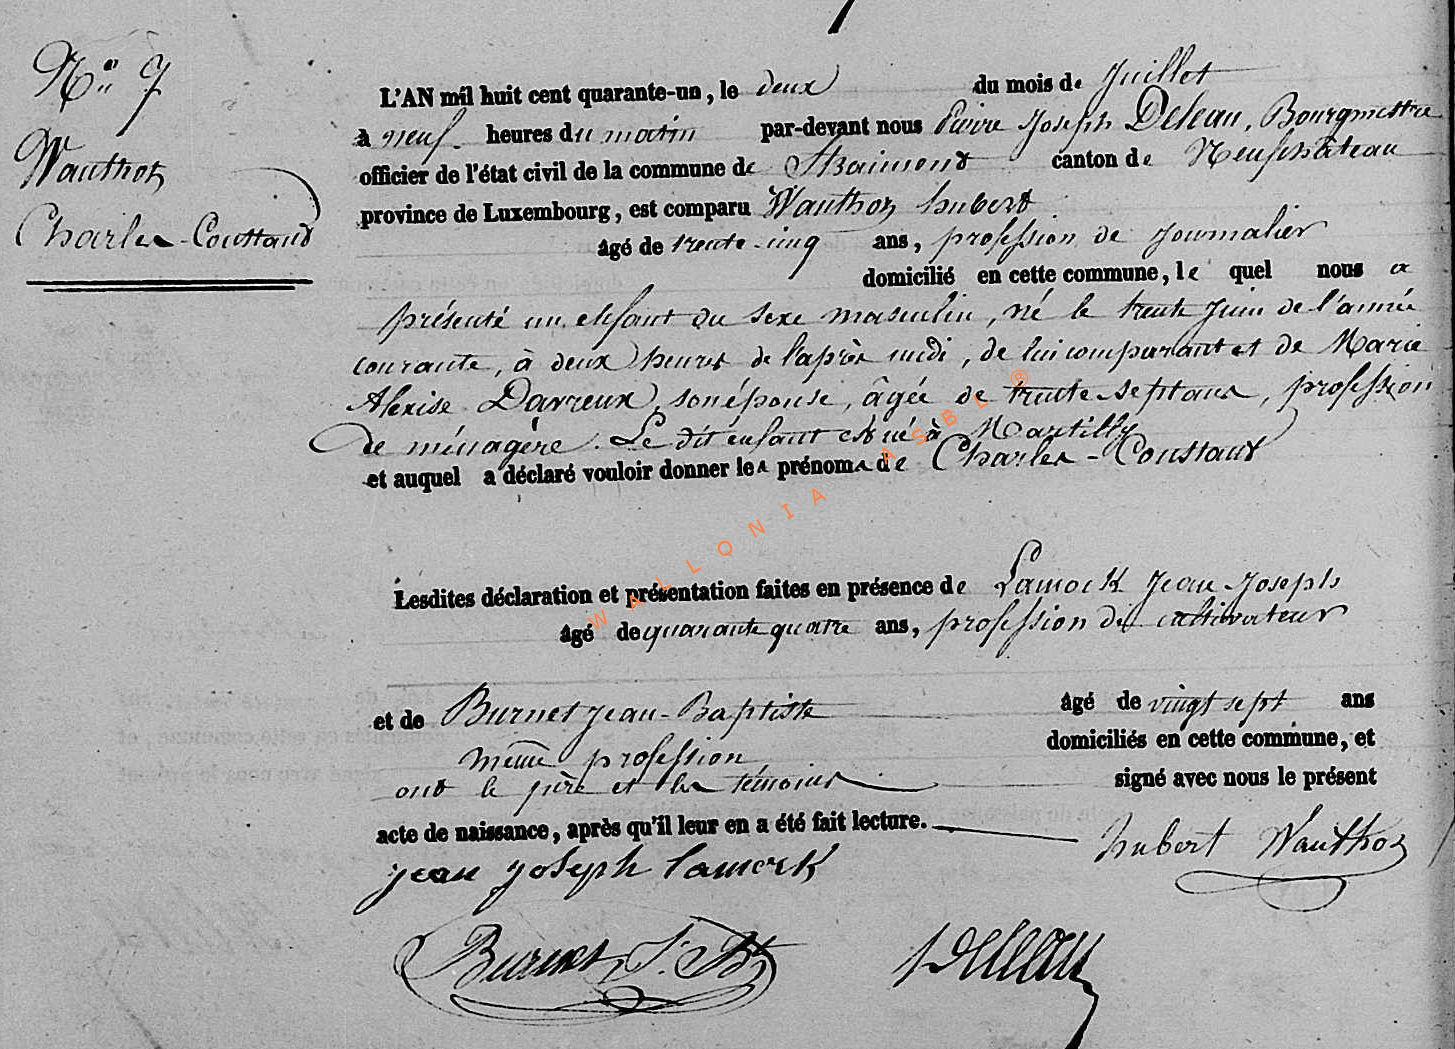 N° 7
Wauthoz
Charles-Constant
L'AN mil huit cent quarante-un, le deux du mois de Juillet
à neuf heures du matin par-devant nous Pierre Joseph Deleau, Bourgmestre
officier de l'état civil de la commune de Straimont canton de Neufchâteau
province de Luxembourg, est comparu Wauthoz hubert
âgé de trente-cinq ans, profession de Journalier
domicilié en cette commune, le quel nous a
présenté un enfant du sexe masculin, né le trente Juin de l'année
courante, à deux heures de l'après midi, de lui comparant et de Marie
Alexise Davreux, son épouse, âgée de trente-sept ans, profession
de ménagère. Le dit enfant est né à Martilly
et auquel a déclaré vouloir donner les prénoms de Charles-Constant
Lesdites déclaration et présentation faites en présence de Lamock Jean-Joseph
âgé de quarante quatre ans, profession de cultivateur
et de Burnet Jean-Baptiste âgé de vingt sept ans
même profession domiciliés en cette commune, et
ont le père et les témoins signé avec nous le présent
acte de naissance, après qu'il leur en a été fait lecture.
hubert Wauthoz
jean joseph lamock
Burnet J. Bt
Deleau
WALLONIA ASBL ®